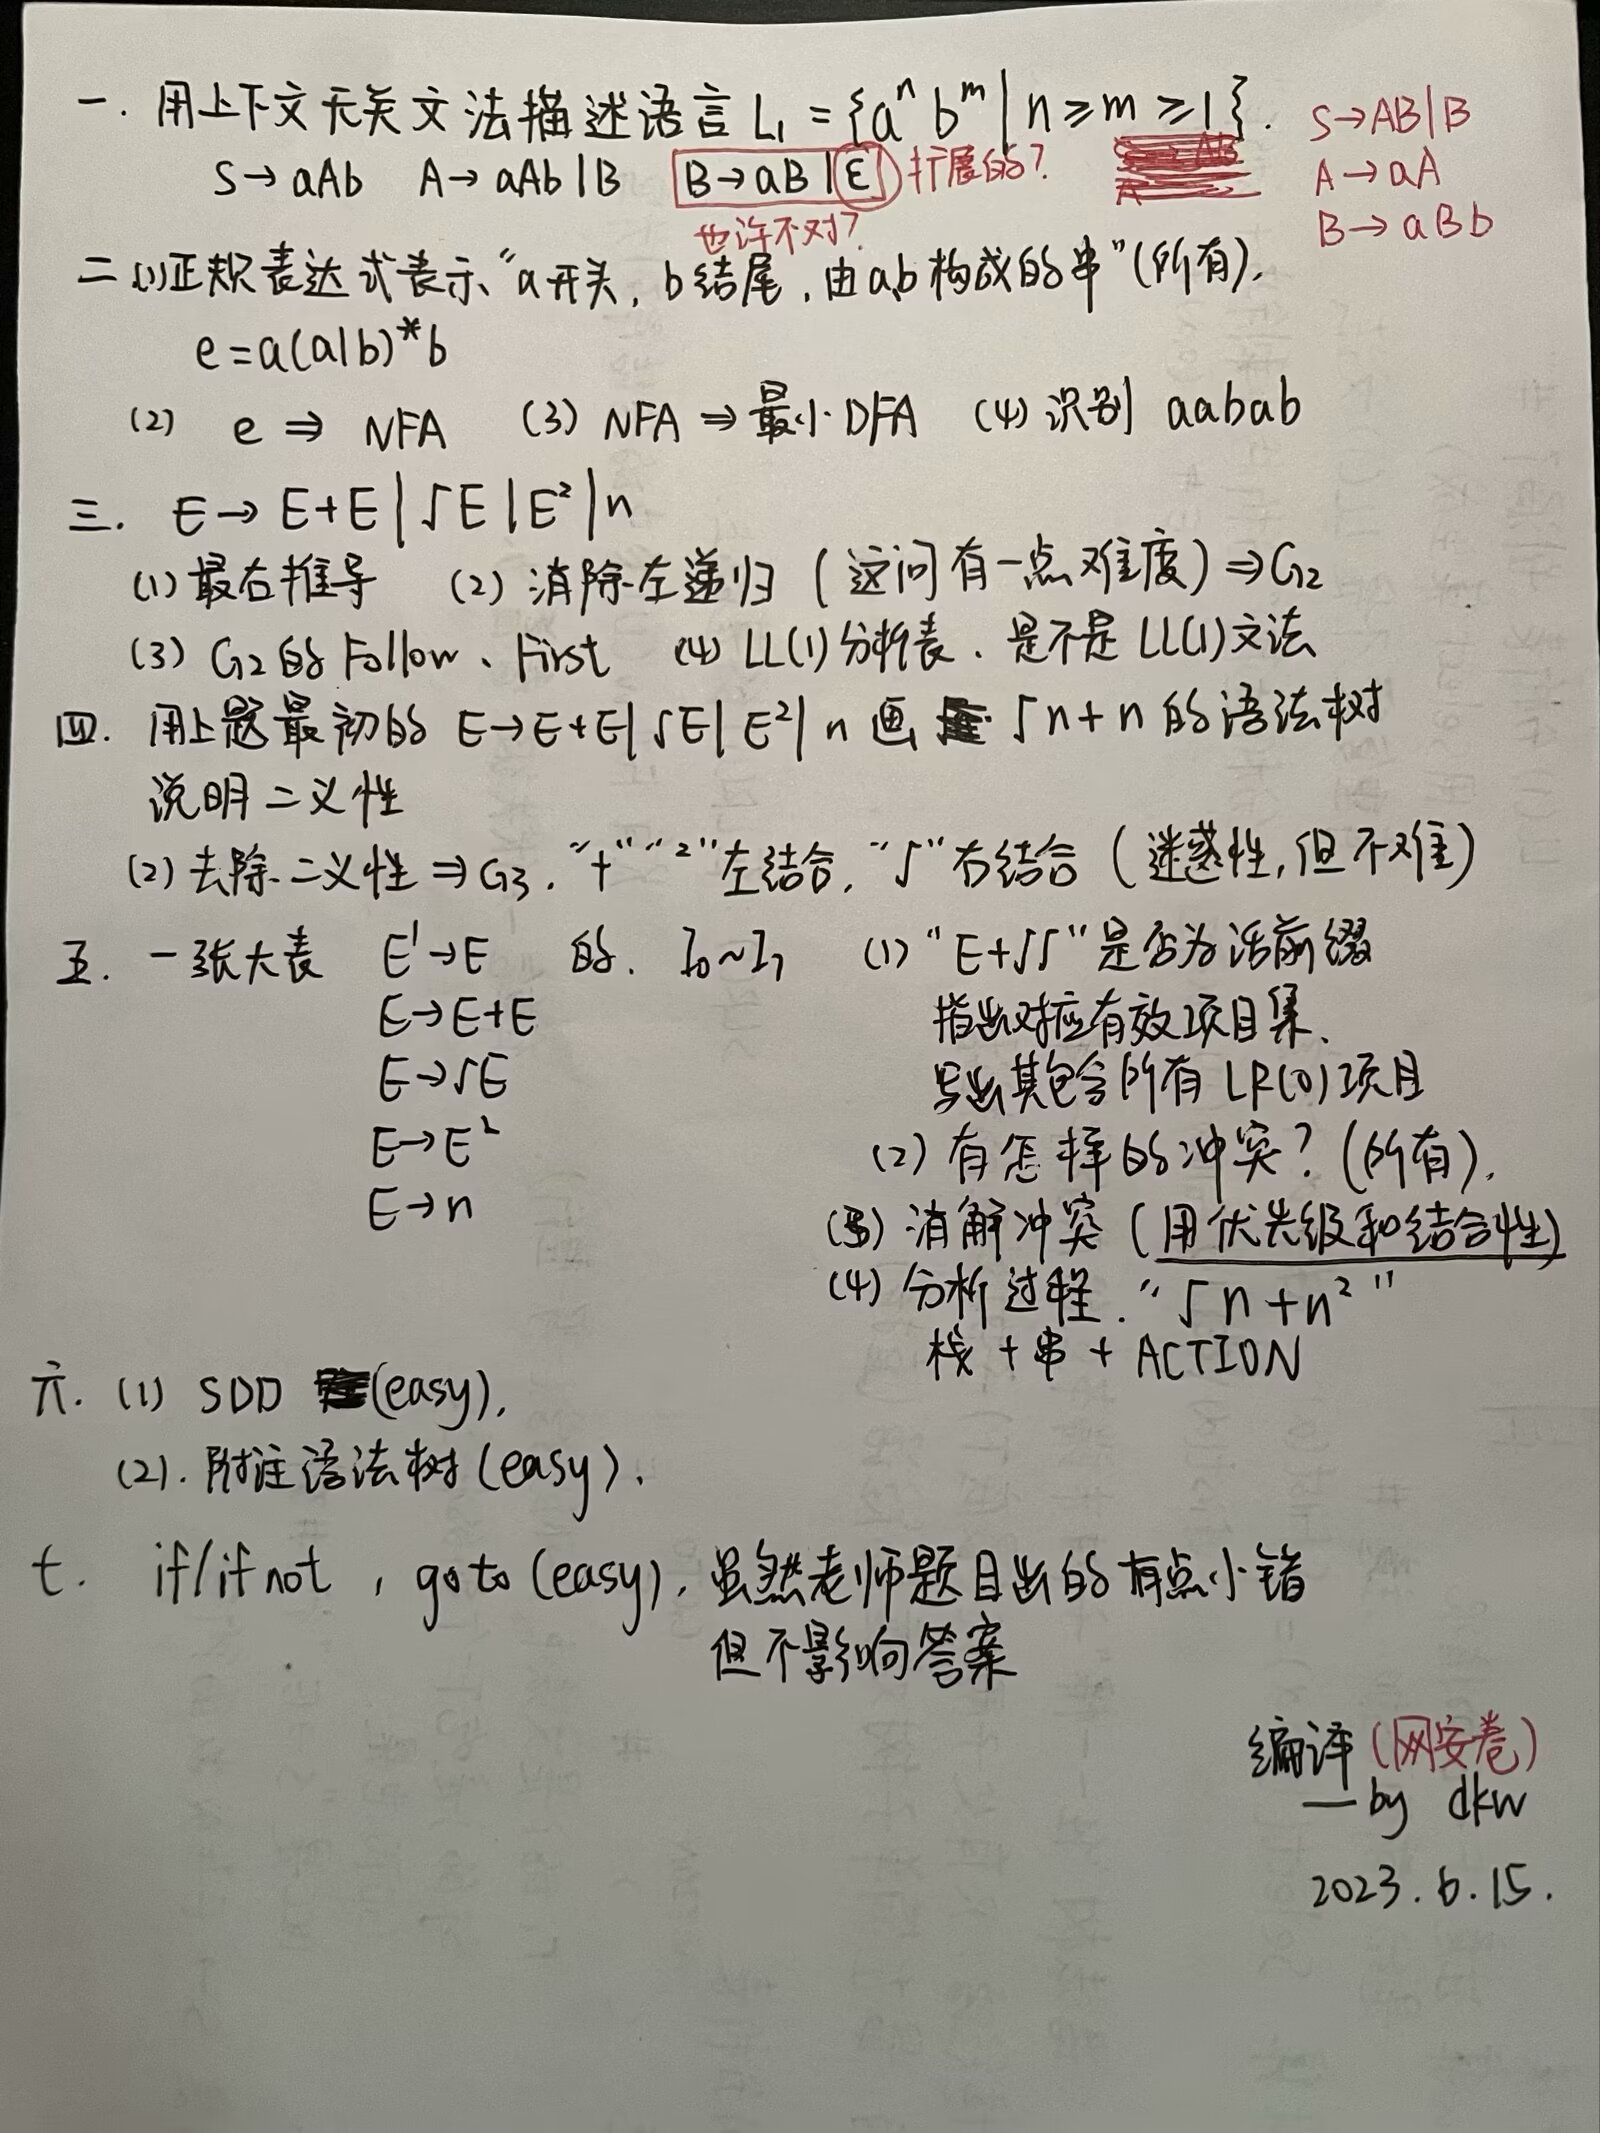 一. 用上下文无关文法描述语言 L₁ = {aⁿ bᵐ | n ≥ m ≥ 1}.
S→AB|B
S→aAb  A→aAb|B  B→aB|ε  扩展的?
A→aA
也许不对?
B→aBb
二 (1)正规表达式表示“a开头, b结尾, 由a,b构成的串”(所有).
e=a(a|b)*b
(2) e ⇒ NFA  (3) NFA ⇒ 最小DFA  (4) 识别 aabab
三. E→E+E|√E|E²|n
(1) 最右推导  (2) 消除左递归 (这问有一点难度)⇒G₂
(3) G₂的 Follow、First  (4) LL(1)分析表. 是不是LL(1)文法
四. 用上题最初的 E→E+E|√E|E²|n 画 √n+n 的语法树
说明二义性
(2) 去除二义性⇒G₃. “+”“²”左结合, “√”右结合 (迷惑性,但不难)
五. 一张大表  E'→E  的. I₀~I₇  (1) “E+√√”是否为活前缀
E→E+E  指出对应有效项目集.
E→√E  写出其包含所有LR(0)项目
E→E²  (2) 有怎样的冲突? (所有).
E→n  (3) 消解冲突 (用优先级和结合性)
(4) 分析过程. “√n+n²”
栈 + 串 + ACTION
六. (1) SDD (easy).
(2). 附注语法树 (easy).
七. if/if not , goto (easy). 虽然老师题目出的有点小错
但不影响答案
编译(网安卷)
— by dkw
2023.6.15.